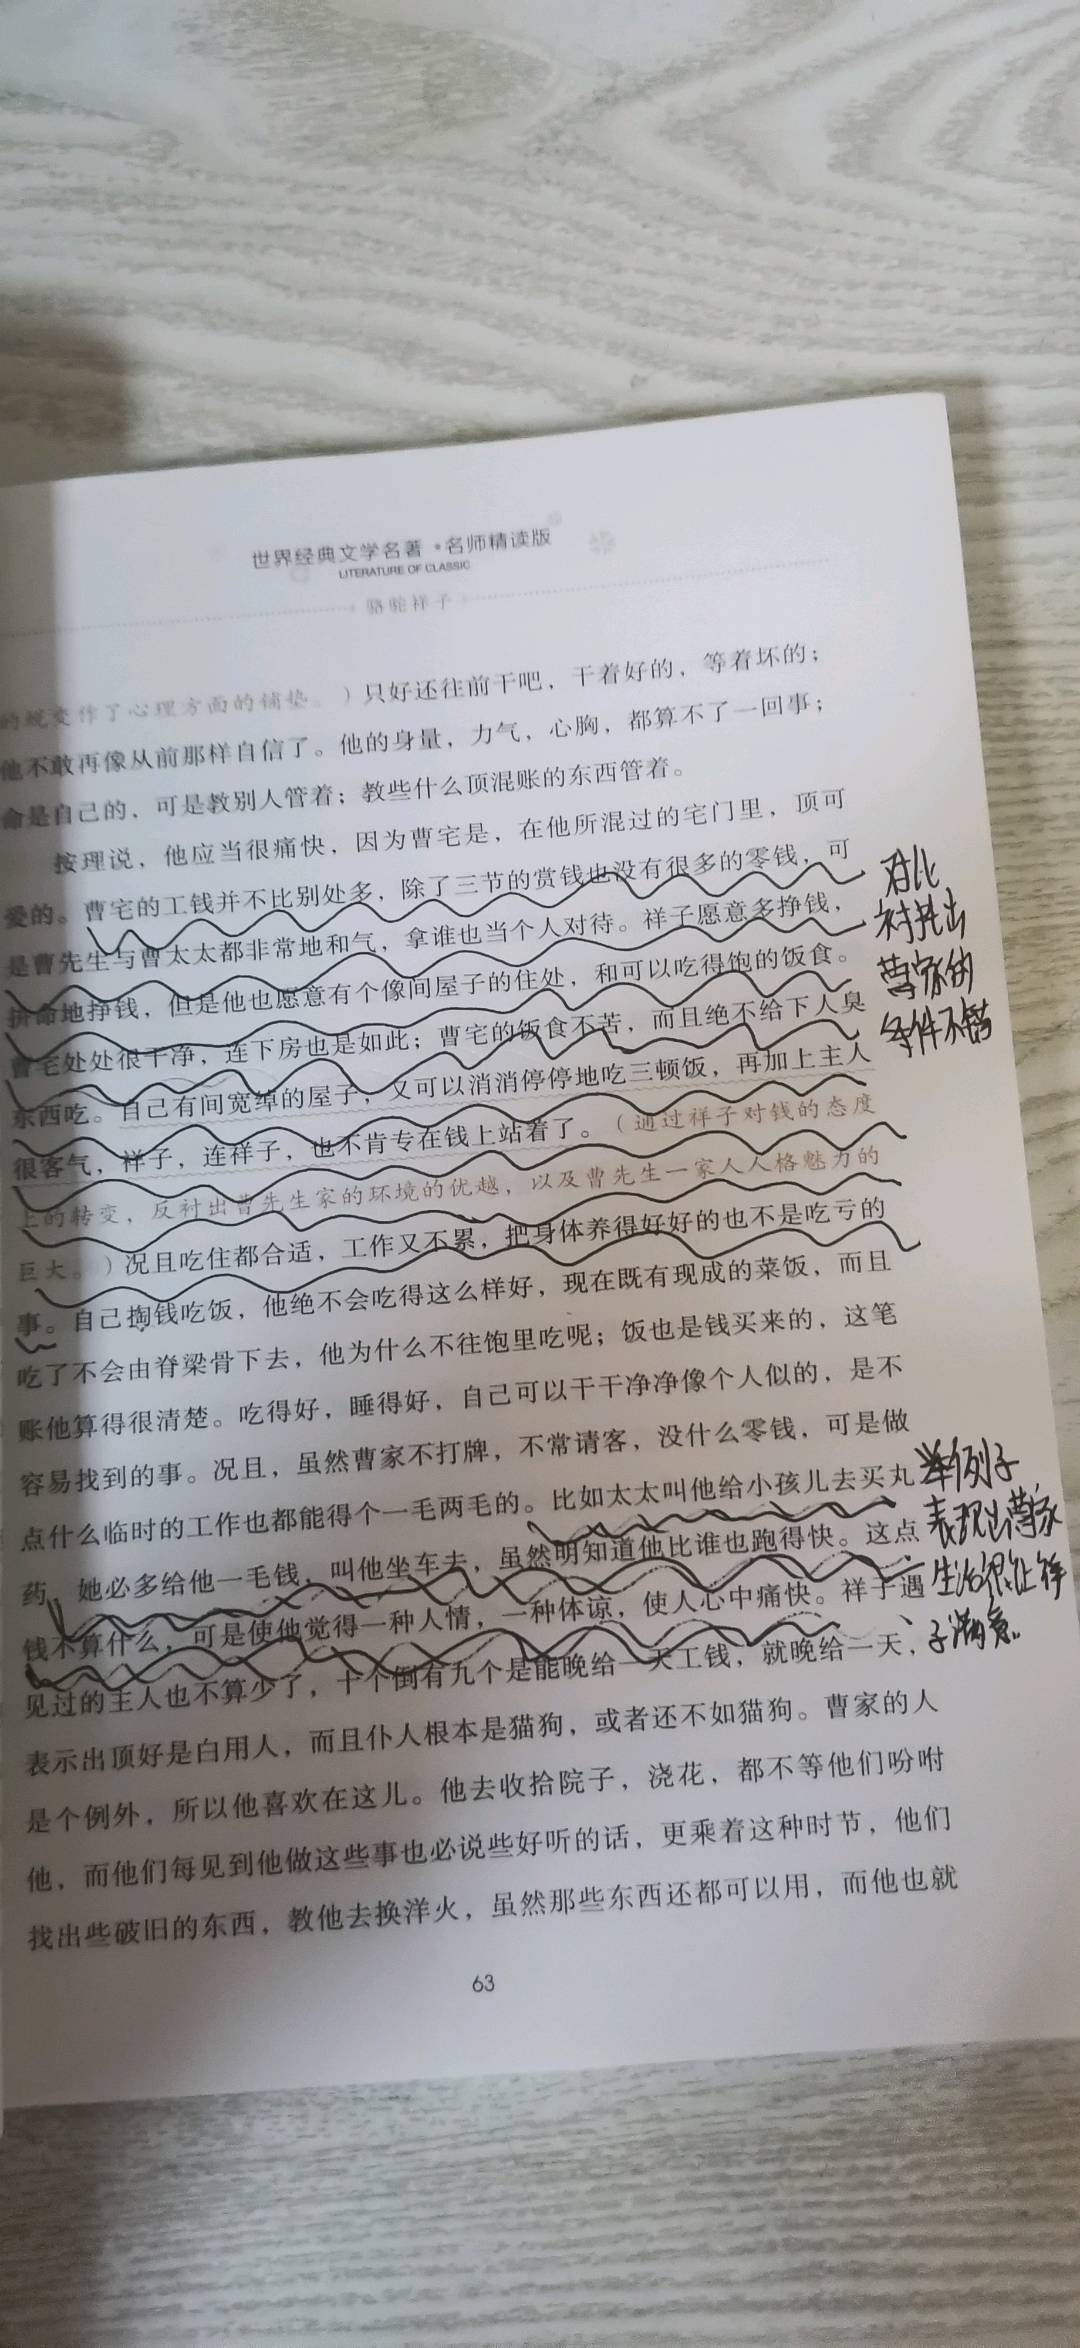 世界经典文学名著·名师精读版
LITERATURE OF CLASSIC
骆驼祥子
的蜕变作了心理方面的铺垫。）只好还往前干吧，干着好的，等着坏的；
他不敢再像从前那样自信了。他的身量，力气，心胸，都算不了一回事；
命是自己的，可是教别人管着；教些什么顶混账的东西管着。
按理说，他应当很痛快，因为曹宅是，在他所混过的宅门里，顶可
爱的。曹宅的工钱并不比别处多，除了三节的赏钱也没有很多的零钱，可
是曹先生与曹太太都非常地和气，拿谁也当个人对待。祥子愿意多挣钱，
拼命地挣钱，但是他也愿意有个像间屋子的住处，和可以吃得饱的饭食。
曹宅处处很干净，连下房也是如此；曹宅的饭食不苦，而且绝不给下人臭
东西吃。自己有间宽绰的屋子，又可以消消停停地吃三顿饭，再加上主人
很客气，祥子，连祥子，也不肯专在钱上站着了。（通过祥子对钱的态度
上的转变，反衬出曹先生家的环境的优越，以及曹先生一家人人格魅力的
巨大。）况且吃住都合适，工作又不累，把身体养得好好的也不是吃亏的
事。自己掏钱吃饭，他绝不会吃得这么样好，现在既有现成的菜饭，而且
吃了不会由脊梁骨下去，他为什么不往饱里吃呢；饭也是钱买来的，这笔
账他算得很清楚。吃得好，睡得好，自己可以干干净净像个人似的，是不
容易找到的事。况且，虽然曹家不打牌，不常请客，没什么零钱，可是做
点什么临时的工作也都能得个一毛两毛的。比如太太叫他给小孩儿去买丸
药，她必多给他一毛钱，叫他坐车去，虽然明知道他比谁也跑得快。这点
钱不算什么，可是使他觉得一种人情，一种体谅，使人心中痛快。祥子遇
见过的主人也不算少了，十个倒有九个是能晚给一天工钱，就晚给一天，
表示出顶好是白用人，而且仆人根本是猫狗，或者还不如猫狗。曹家的人
是个例外，所以他喜欢在这儿。他去收拾院子，浇花，都不等他们吩咐
他，而他们每见到他做这些事也必说些好听的话，更乘着这种时节，他们
找出些破旧的东西，教他去换洋火，虽然那些东西还都可以用，而他也就
63
对比
衬托出
曹家的
条件不错
举例子
表现出曹家
生活很让祥
子满意。